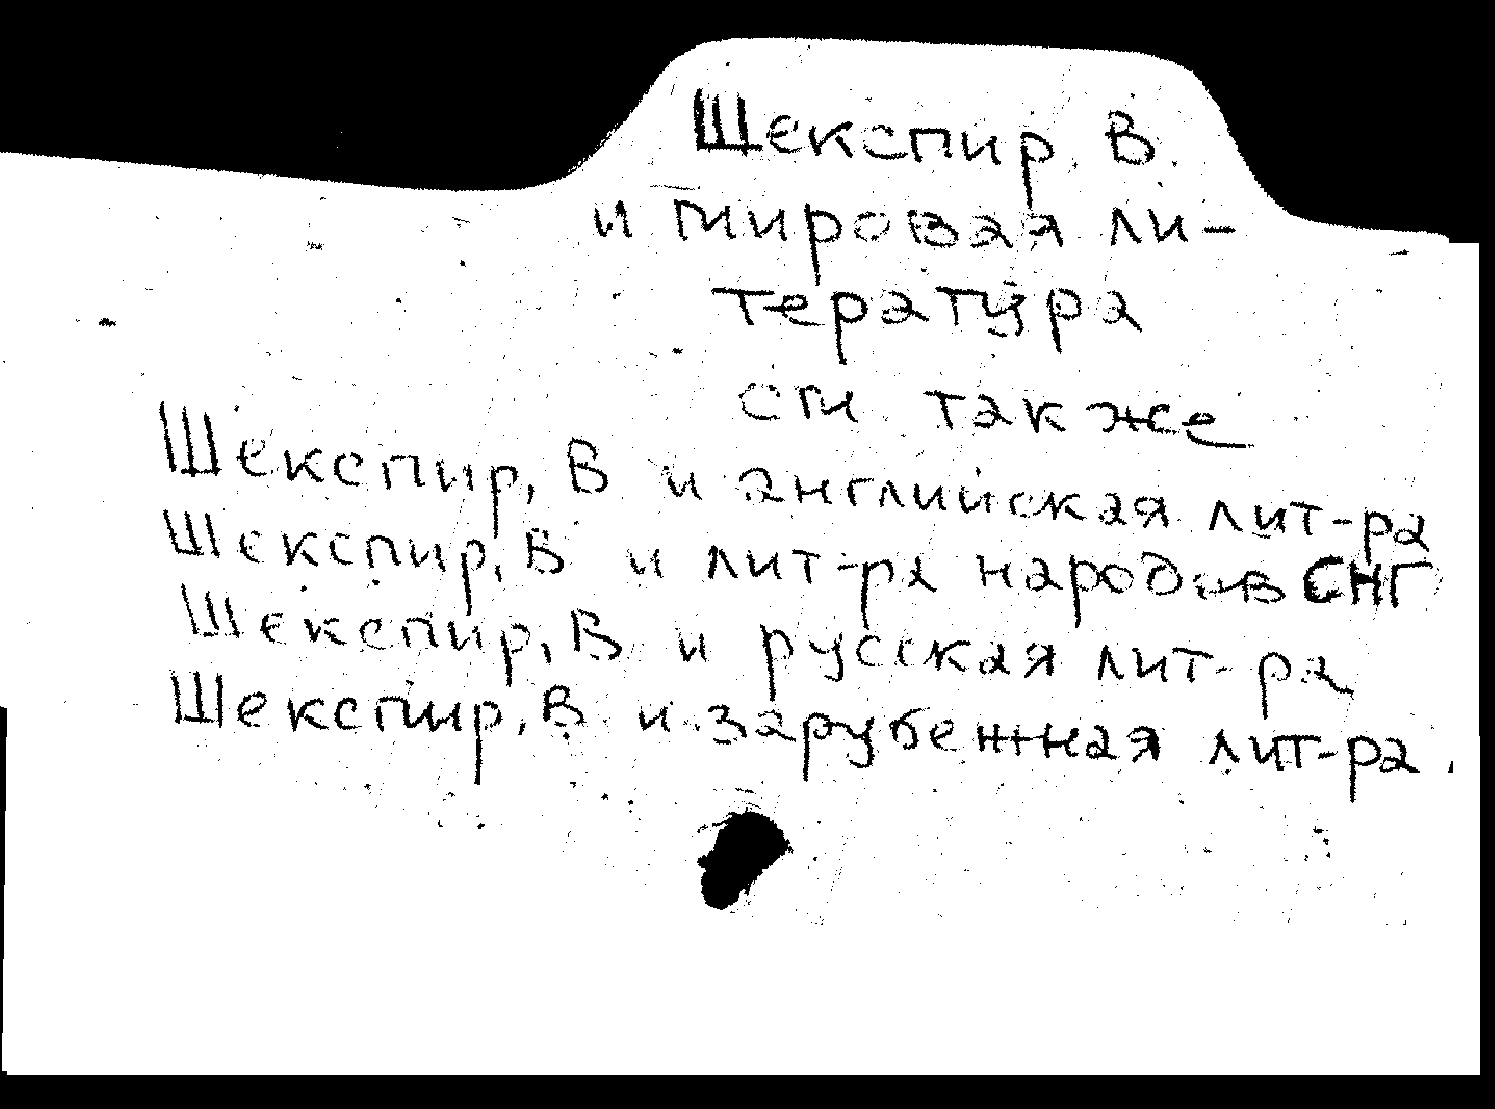 Шекспир, В.
и мировая ли-
тература
см также
Шекспир, В и английская лит-ра
Шекспир, В и лит-ра народов СНГ
Шекспир, В и русская лит-ра
Шекспир, В и зарубежная лит-ра.